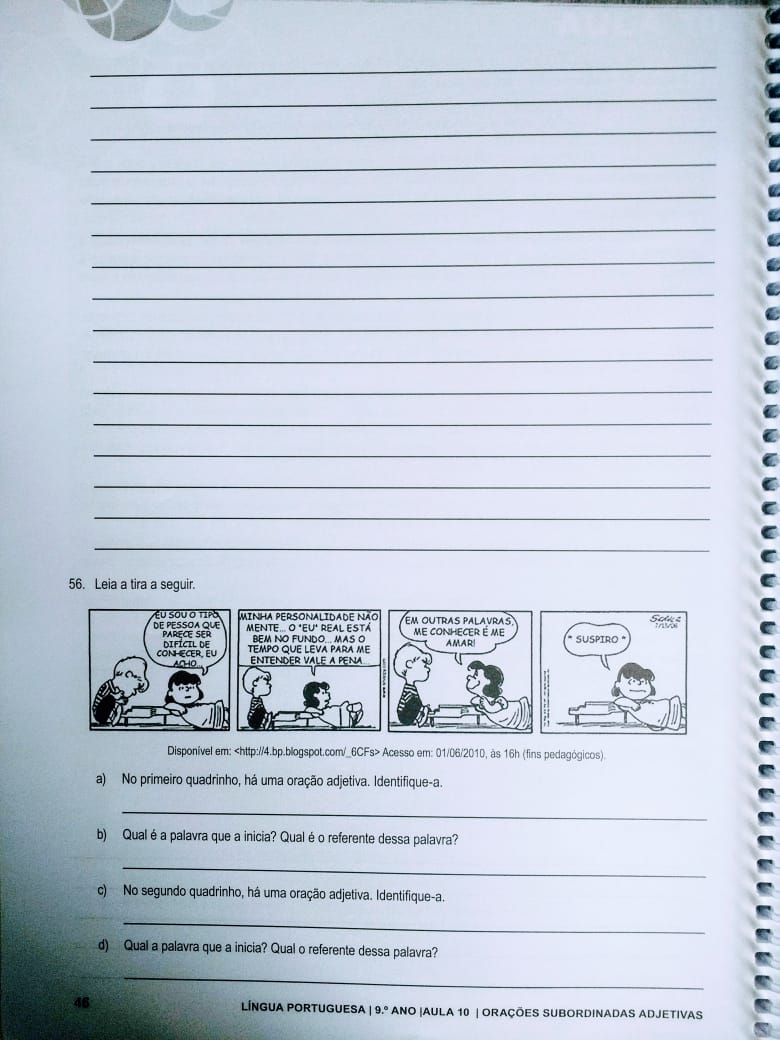 56. Leia a tira a seguir.
EU SOU O TIPO
DE PESSOA QUE
PARECE SER
DIFÍCIL DE
CONHECER, EU
ACHO...
MINHA PERSONALIDADE NÃO
MENTE... O "EU" REAL ESTÁ
BEM NO FUNDO... MAS O
TEMPO QUE LEVA PARA ME
ENTENDER VALE A PENA...
EM OUTRAS PALAVRAS,
ME CONHECER É ME
AMAR!
* SUSPIRO *
Disponível em: <http://4.bp.blogspot.com/_6CFs> Acesso em: 01/06/2010, às 16h (fins pedagógicos).
a) No primeiro quadrinho, há uma oração adjetiva. Identifique-a.
b) Qual é a palavra que a inicia? Qual é o referente dessa palavra?
c) No segundo quadrinho, há uma oração adjetiva. Identifique-a.
d) Qual a palavra que a inicia? Qual o referente dessa palavra?
46
LÍNGUA PORTUGUESA | 9.º ANO |AULA 10 | ORAÇÕES SUBORDINADAS ADJETIVAS